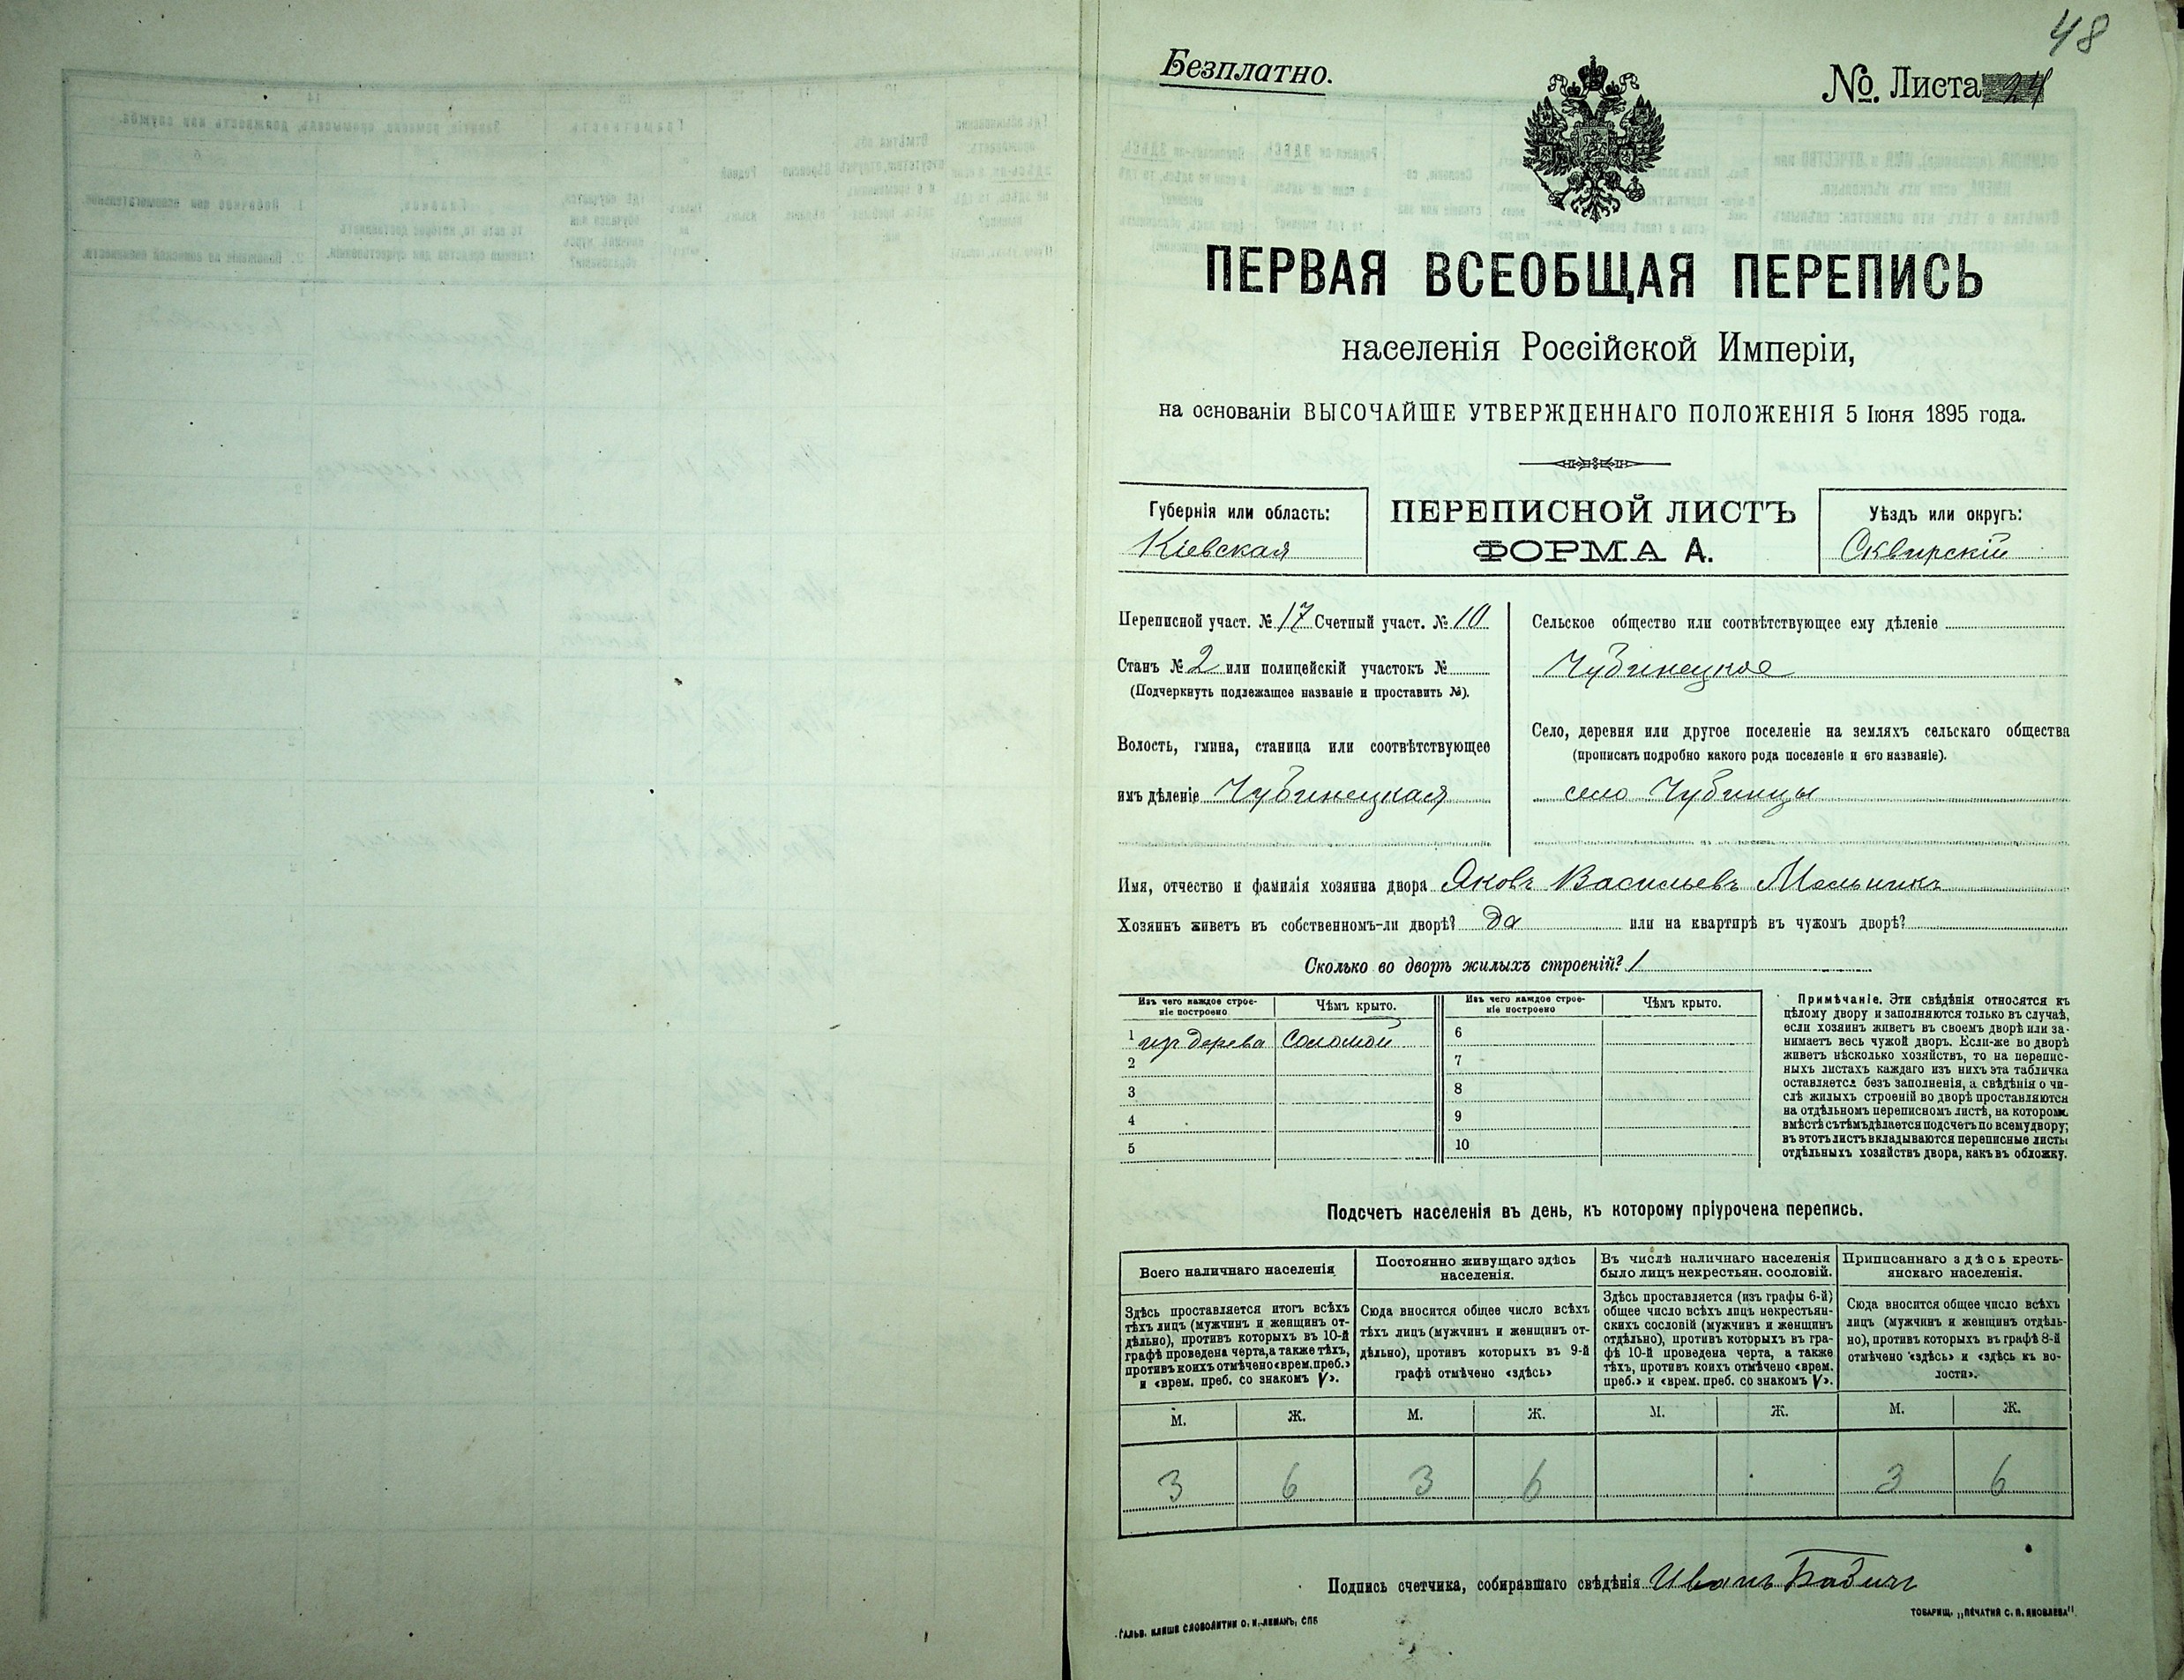 48
Безплатно.
№. Листа 24
ПЕРВАЯ ВСЕОБЩАЯ ПЕРЕПИСЬ
населенія Россійской Имперіи,
на основаніи ВЫСОЧАЙШЕ УТВЕРЖДЕННАГО ПОЛОЖЕНІЯ 5 Іюня 1895 года.
Губернія или область:
Кіевская
ПЕРЕПИСНОЙ ЛИСТЪ
ФОРМА А.
Уѣздъ или округъ:
Сквирскій
Переписной участ. № 17 Счетный участ. № 10
Станъ № 2 или полицейскій участокъ №
(Подчеркнуть подлежащее названіе и проставить №).
Волость, гмина, станица или соотвѣтствующее
имъ дѣленіе Чубинецкая
Сельское общество или соотвѣтствующее ему дѣленіе
Чубинецкое
Село, деревня или другое поселеніе на земляхъ сельскаго общества
(прописать подробно какого рода поселеніе и его названіе).
село Чубинцы
Имя, отчество и фамилія хозяина двора Яковъ Васильевъ Мельникъ
Хозяинъ живетъ въ собственномъ-ли дворѣ? да или на квартирѣ въ чужомъ дворѣ?
Сколько во дворѣ жилыхъ строеній? 1
Изъ чего каждое строе-
ніе построено
Чѣмъ крыто.
Изъ чего каждое строе-
ніе построено
Чѣмъ крыто.
1 изъ дерева Соломой
2
3
4
5
6
7
8
9
10
Примѣчаніе. Эти свѣдѣнія относятся къ
цѣлому двору и заполняются только въ случаѣ,
если хозяинъ живетъ въ своемъ дворѣ или за-
нимаетъ весь чужой дворъ. Если-же во дворѣ
живетъ нѣсколько хозяйствъ, то на перепис-
ныхъ листахъ каждаго изъ нихъ эта табличка
оставляется безъ заполненія, а свѣдѣнія о чи-
слѣ жилыхъ строеній во дворѣ проставляются
на отдѣльномъ переписномъ листѣ, на которомъ
вмѣстѣ съ тѣмъ дѣлается подсчетъ по всему двору;
въ этотъ листъ вкладываются переписные листы
отдѣльныхъ хозяйствъ двора, какъ въ обложку.
Подсчетъ населенія въ день, къ которому пріурочена перепись.
Всего наличнаго населенія
Здѣсь проставляется итогъ всѣхъ
тѣхъ лицъ (мужчинъ и женщинъ от-
дѣльно), противъ которыхъ въ 10-й
графѣ проведена черта, а также тѣхъ,
противъ коихъ отмѣчено «врем. преб.»
и «врем. преб. со знакомъ V».
Постоянно живущаго здѣсь
населенія.
Сюда вносится общее число всѣхъ
тѣхъ лицъ (мужчинъ и женщинъ от-
дѣльно), противъ которыхъ въ 9-й
графѣ отмѣчено «здѣсь»
Въ числѣ наличнаго населенія
было лицъ некрестьян. сословій.
Здѣсь проставляется (изъ графы 6-й)
общее число всѣхъ лицъ некрестьян-
скихъ сословій (мужчинъ и женщинъ
отдѣльно), противъ которыхъ въ гра-
фѣ 10-й проведена черта, а также
тѣхъ, противъ коихъ отмѣчено «врем.
преб.» и «врем. преб. со знакомъ V».
Приписаннаго здѣсь кресть-
янскаго населенія.
Сюда вносится общее число всѣхъ
лицъ (мужчинъ и женщинъ отдѣль-
но), противъ которыхъ въ графѣ 8-й
отмѣчено «здѣсь» и «здѣсь къ во-
лости».
М. Ж. М. Ж. М. Ж. М. Ж.
3 6 3 6 3 6
Подпись счетчика, собиравшаго свѣдѣнія Иванъ Бабичъ
ГАЛЬВ. КЛИШЕ СЛОВОЛИТНИ О. И. ЛЕМАНЪ, СПБ
ТОВАРИЩ. „ПЕЧАТНЯ С. П. ЯКОВЛЕВА"